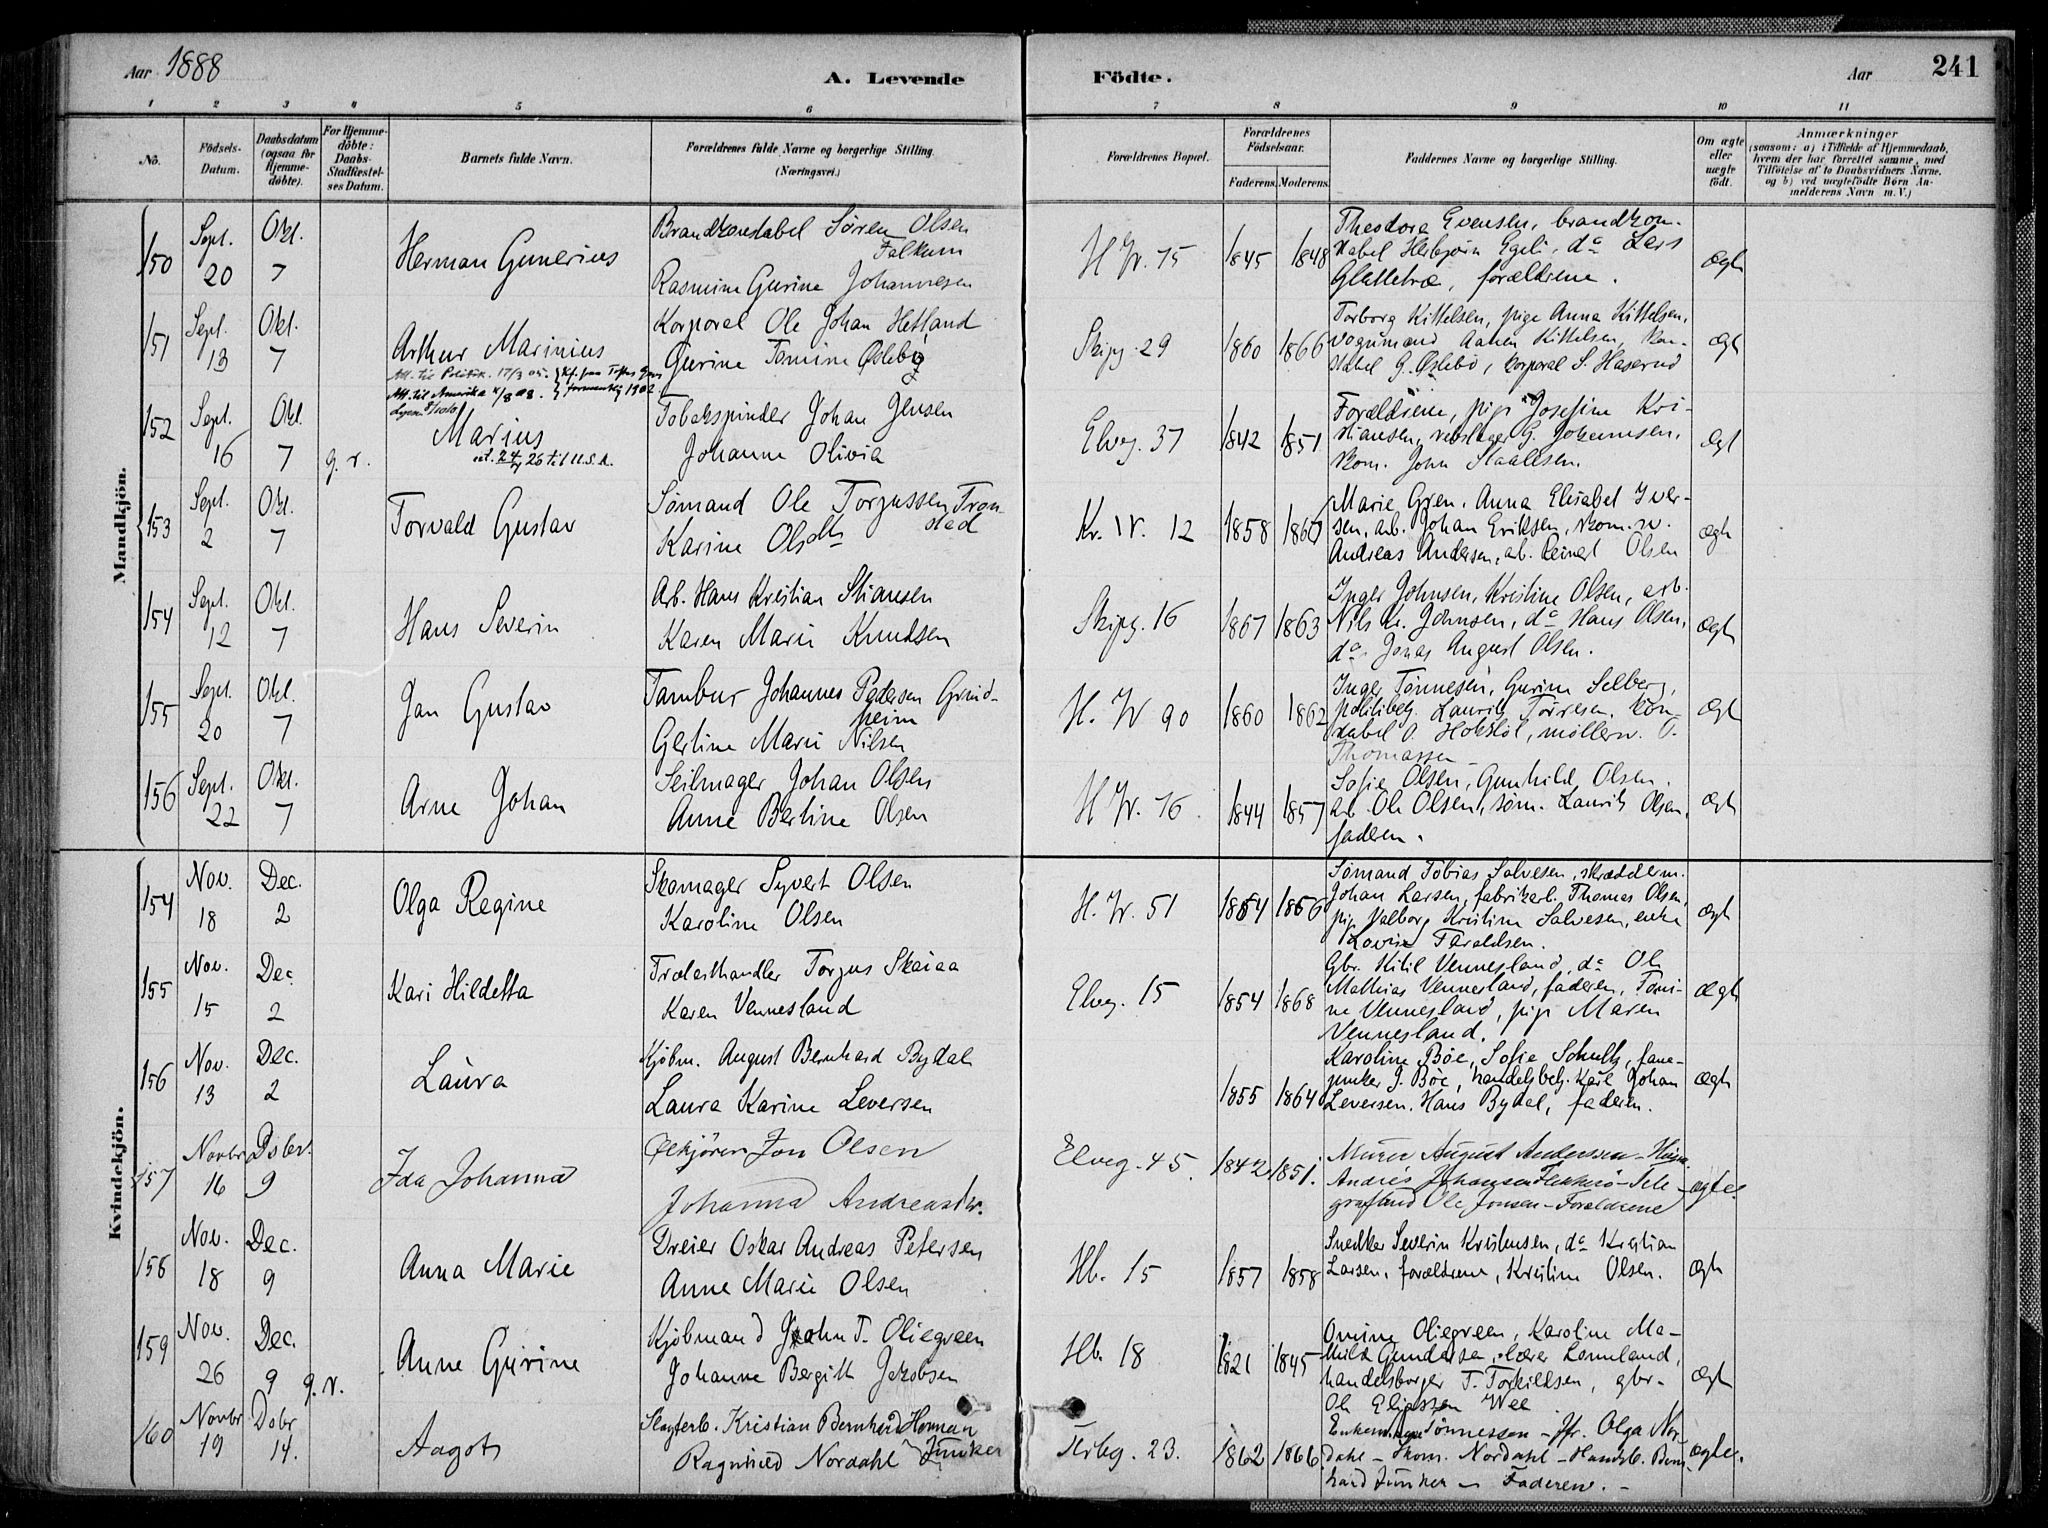 Aar 1888
A. Levende
Födte.
Aar
241
1 2 3 4 5 6 7 8 9 10 11
No.
Födsels-Datum.
Daabsdatum (ogsaa for Hjemme-döbte).
For Hjemme-döbte: Daabs-Stadfæstel-ses Datum.
Barnets fulde Navn.
Forældrenes fulde Navne og borgerlige Stilling.
(Næringsvei.)
Forældrenes Bopæl.
Forældrenes Födselsaar.
Faderens. Moderens.
Faddernes Navne og borgerlige Stilling.
Om ægte eller uægte födt.
Anmærkninger
(saasom: a) i Tilfælde af Hjemmedaab, hvem der har forrettet samme, med Tilföielse af to Daabsvidners Navne. og b) ved uægtefödte Börn An-melderens Navn m. V.)
Mandkjön.
150 Sept. 20 Okt. 7 Herman Gunerius
Brandkonstabel Sören Olsen
Falkum
Rasmine Gurine Johannesen
H W. 75 1845 1848
Theodora Evensen, brandkon-
stabel Herbjörn Egeli, do Lars
Glattetræ, forældrene.
ægte
151 Sept. 13 Okt. 7 Arthur Marinius
Korporal Ole Johan Hetland
Gurine Tomine Øslebø
Skipg. 29 1860 1866
Torborg Kittelsen, pige Anna Kittelsen,
vognmand Aanen Kittelsen, kon-
stabel G. Øslebö, korporal S. Haserud
ægt
152 Sept. 16 Okt. 7 g. v. Marius
att. 24/4 26 til U.S.A.
Tobakspinder Johan Jensen
Johanne Olivia
Elveg. 37 1842 1851
Forældrene, pige Josefine Kri-
stiansen, rebslager G. Johannesen,
skom. John Staalesen.
ægt
153 Sept. 2 Okt. 7 Torvald Gustav
Sömand Ole Torjussen Tron-
stad
Karine Olsdtr
Kr. W. 12 1858 1860
Marie Gren, Anna Elisabet Iver-
sen, arb. Johan Eriksen, skom. sv.
Andreas Andersen, arb. Reinert Olsen
ægte
154 Sept. 12 Okt. 7 Hans Severin
Arb. Hans Kristian Stiansen
Karen Marie Knudsen
Skipg. 16 1867 1863
Inger Johnsen, Kristine Olsen, arb.
Nils Kr. Johnsen, do Hans Olsen,
do. Jonas August Olsen.
ægte
155 Sept. 20 Okt. 7 Jan Gustav
Tambur Johannes Pedersen Grind-
heim
Gertine Marie Nilsen
H. W 90 1860 1862
Inger Tönnesen, Gurine Selberg,
politibetj. Laurits Törresen, kon-
stabel O. Hokstöl, möllersv. T.
Thomassen
ægt
156 Sept. 22 Okt. 7 Arne Johan
Seilmager Johan Olsen
Anne Bertine Olsen
H W. 16. 1844 1857
Sofie Olsen, Gunhild Olsen.
arb. Ole Olsen, söm. Laurits Olsen,
faderen.
ægt
Kvindekjön.
154 Nov. 18 Dec. 2 Olga Regine
Skomager Syvert Olsen
Karoline Olsen
H. W. 51 1854 1856
Sömand Tobias Salvesen, skrædderm.
Johan Larsen, fabrikarb. Thomas Olsen,
pige Valborg Kristine Salvesen, enke
Lovise Taraldsen.
ægt
155 Nov. 15 Dec 2 Kari Hildetta
Trælasthandler Torjus Skaiaa
Karen Vennesland
Elveg. 15 1854 1868
Gbr. Kitil Vennesland, do Ole
Mathias Vennesland, faderen, Tomi-
ne Vennesland, pige Maren
Vennesland.
ægte
156 Nov. 13 Dec. 2 Laura
Kjöbm. August Bernhard Bydal
Laura Karine Leversen
1855 1864
Karoline Böe, Sofie Schultz, fane-
junker J. Böe, handelsbetj. Karl Johan
Leversen. Hans Bydal, faderen.
ægte
157 Novbr 16 Dsbr. 9 Ida Johanna
Ølkjörer Jon Olsen
Johanna Andreasdtr.
Elveg. 45. 1842. 1851.
Murer August Anderssen
Andrés Johansen Flekkerö - Tele-
grafbud Ole Jonsen - Forældrene
ægte.
158 Nov. 18 Dec. 9 Anna Marie
Dreier Oskar Andreas Petersen
Anne Marie Olsen
Hb. 15 1857 1858
Snedker Severin Kristensen, do Kristian
Larsen, forældrene, Kristine Olsen.
ægte
159 Nov. 26 Dec. 9 g. v. Anne Gurine
Kjöbmand John T. Oliegreen
Johanne Bergitte Jakobsen
Hb. 18 1821 1845
Omine Oliegreen, Karoline Ma-
thilde Gundersen, lærer Lomeland,
handelsborger T. Torkildsen, gbr.
Ole Eliassen Wee
ægt
160 Novbr 19 Dsbr 14. Aagot
Slagterb. Kristian Bernhard Herman
Junker
Ragnhild Nordahl
Torbg. 23. 1862 1866
Tönnessen - Jfr. Olga Nor-
dahl - Skom. Nordahl - Handsb. Bern-
hard Junker - Faderen. -
ægte.